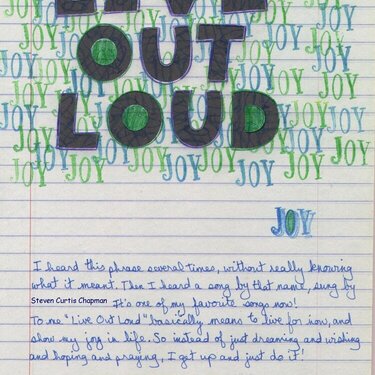 JOY JOY JOY JOY JOY JOY
LIVE
JOY JOY JOY JOY
OUT
JOY JOY JOY JOY
LOUD
JOY JOY JOY JOY JOY JOY
JOY JOY JOY JOY
JOY
I heard this phrase several times, without really knowing
what it meant. Then I heard a song by that name, sung by
Steven Curtis Chapman It's one of my favorite songs now!
To me "Live Out Loud" basically means to live for now, and
show my joy in life. So instead of just dreaming and wishing
and hoping and praying, I get up and just do it!